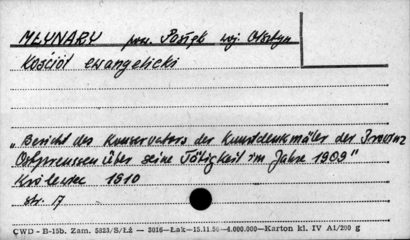 MŁYNARY pow. Pasłęk woj. Olsztyn
Kościół ewangelicki
„Bericht des Konservators der Kunstdenkmäler der Provinz
Ostpreussen über seine Tätigkeit im Jahre 1909"
Królewiec 1910
str. 17
CWD - B-15b. Zam. 5823/S/Łż — 3016—Łak—15.11.56—4.000.000—Karton kl. IV A1/200 g